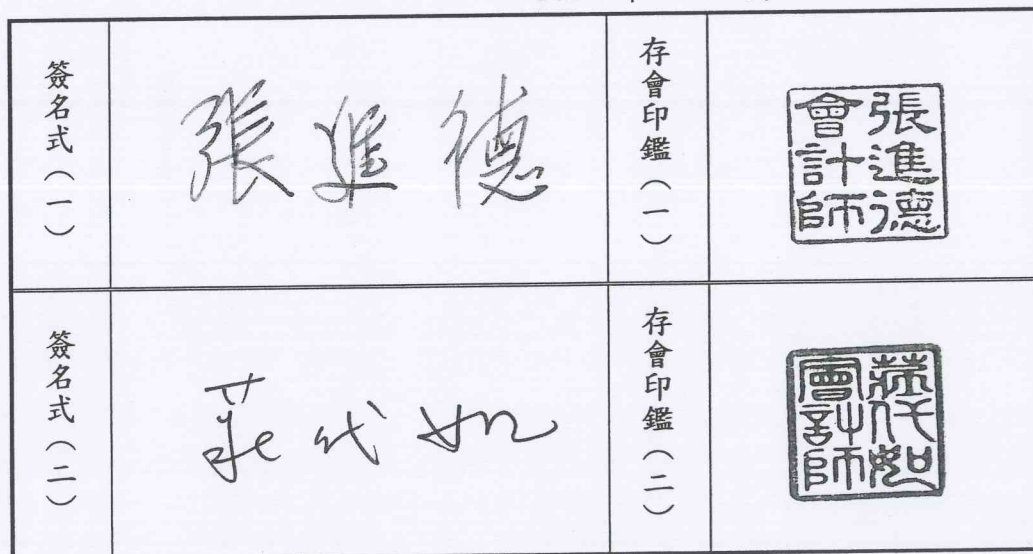 簽名式（一）
張進德
存會印鑑（一）
張進德
會計師
簽名式（二）
莊代如
存會印鑑（二）
莊代如
會計師